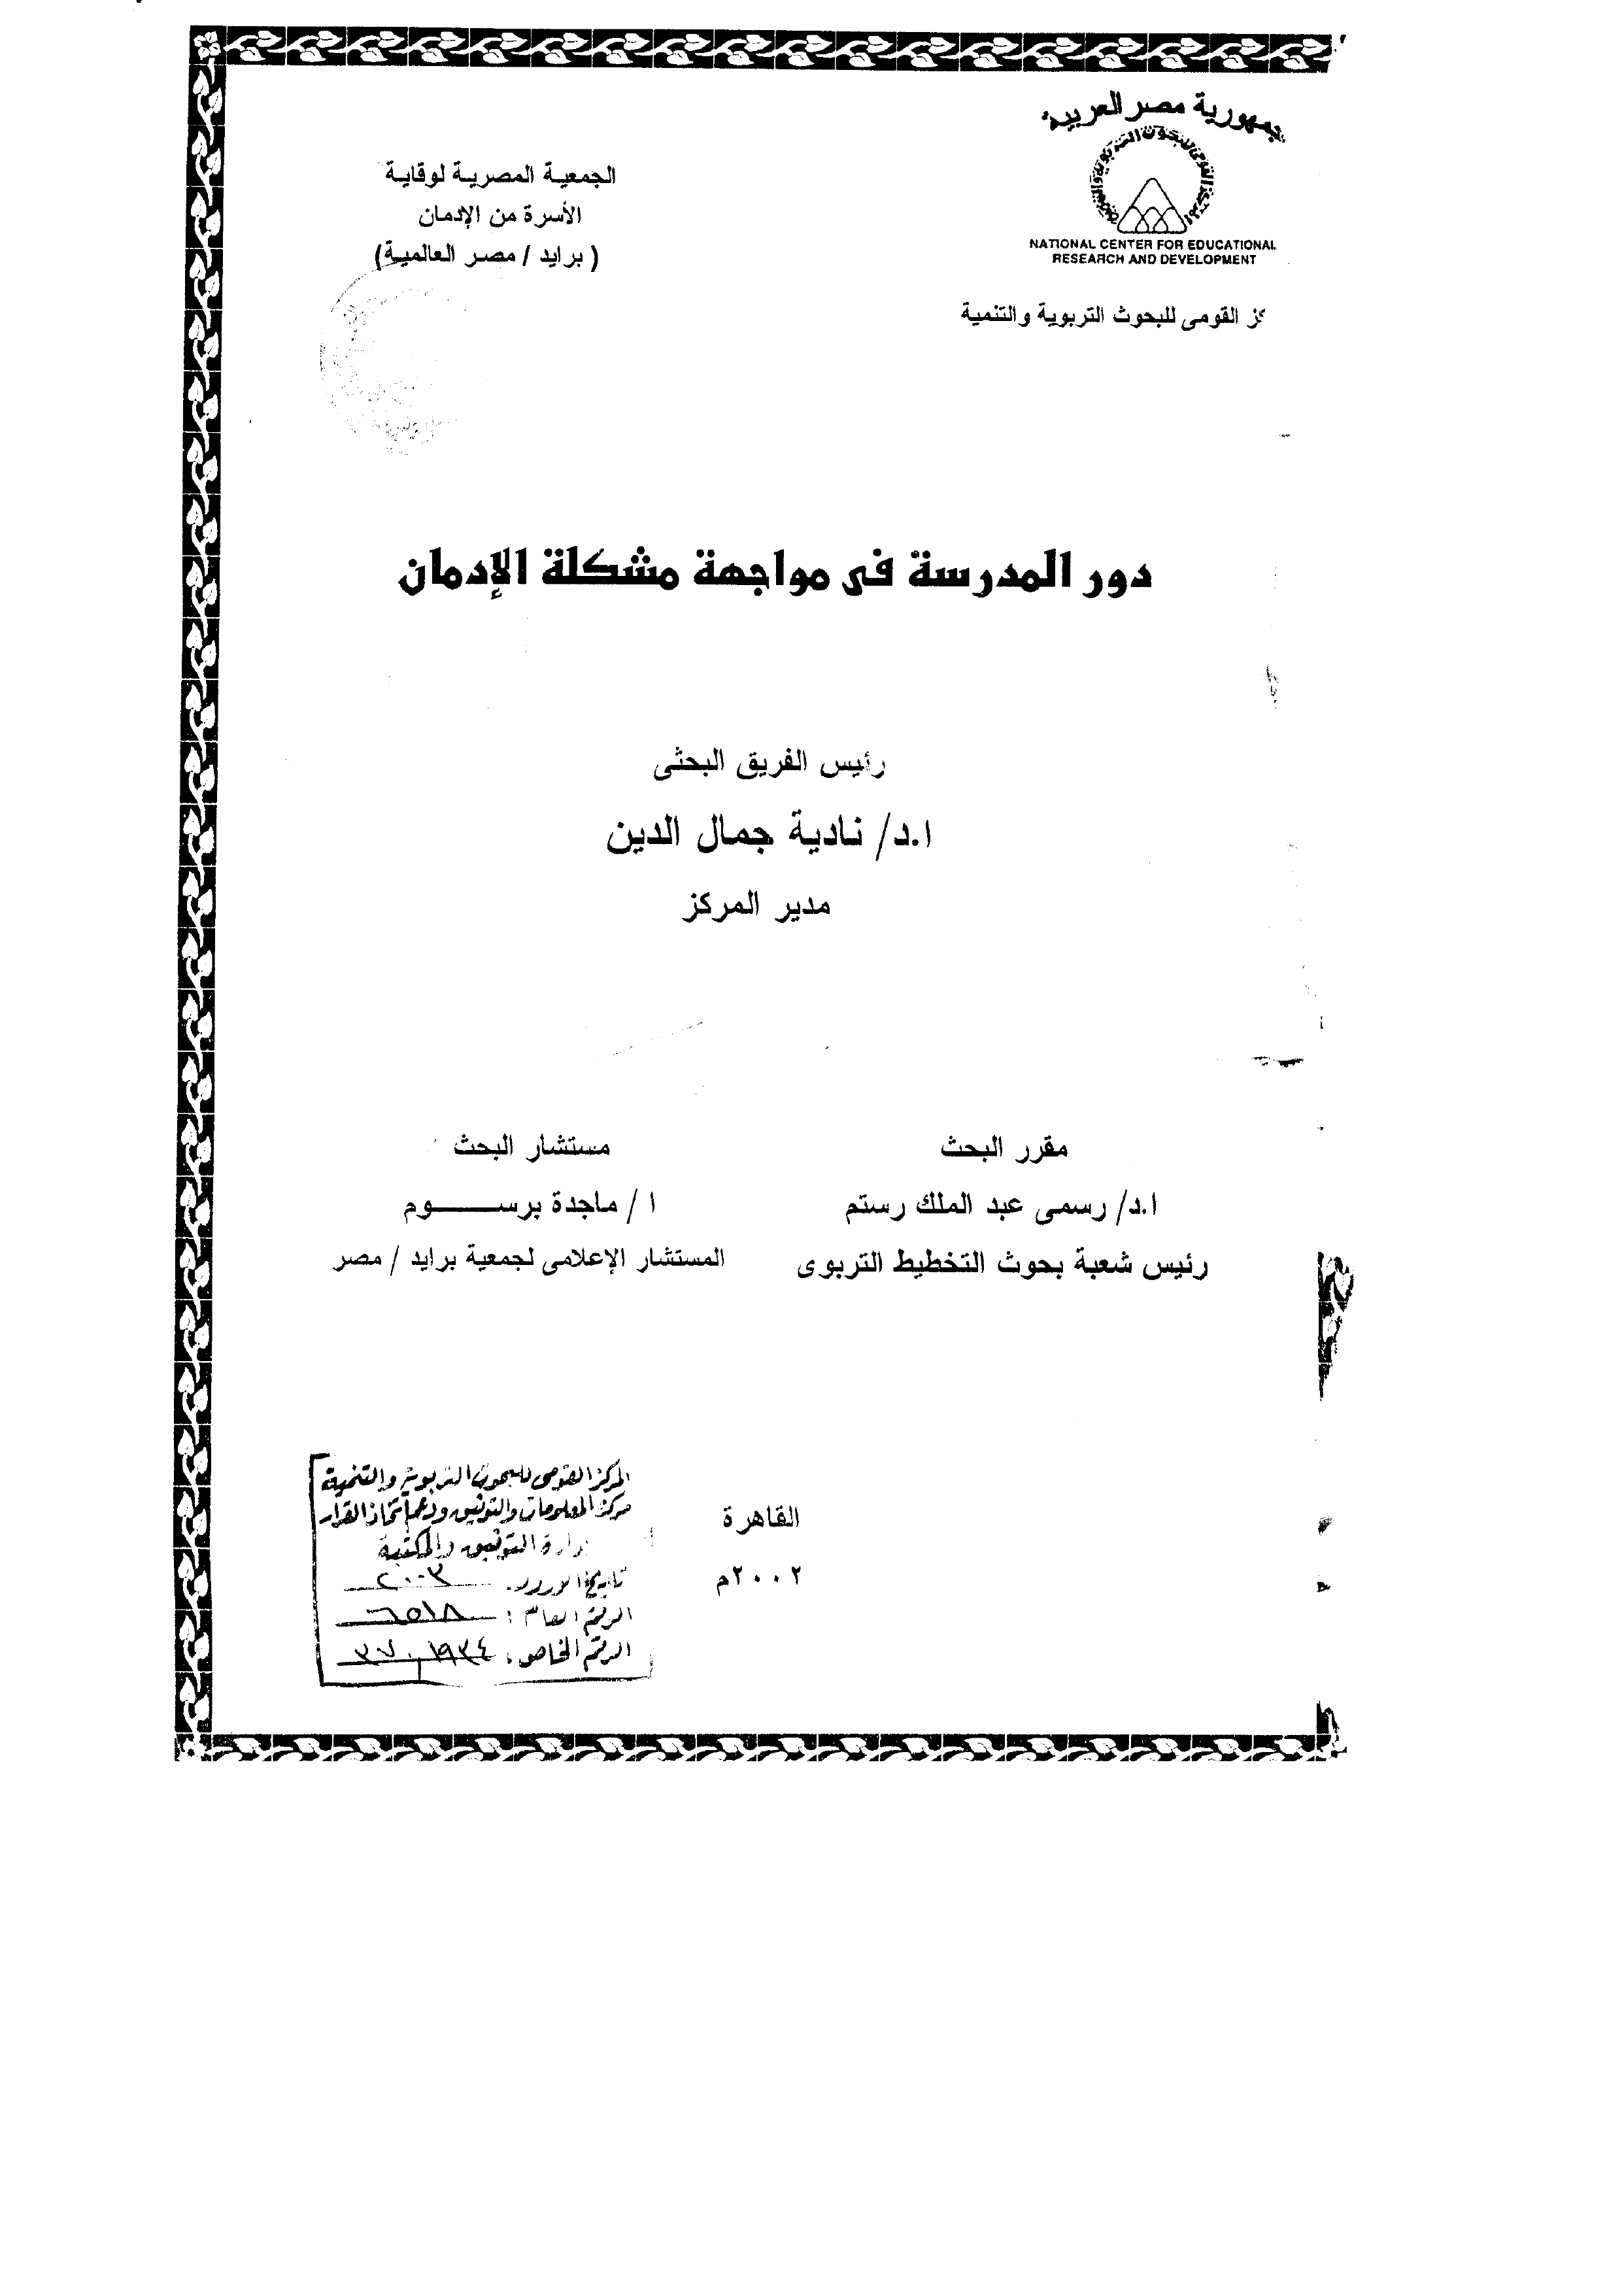 جمهورية مصر العربية
NATIONAL CENTER FOR EDUCATIONAL
RESEARCH AND DEVELOPMENT
القومى للبحوث التربوية والتنمية
الجمعية المصرية لوقاية
الأسرة من الإدمان
( برايد / مصر العالمية)
دور المدرسة فى مواجهة مشكلة الإدمان
رئيس الفريق البحثى
ا.د/ نادية جمال الدين
مدير المركز
مقرر البحث
ا.د/ رسمى عبد الملك رستم
رئيس شعبة بحوث التخطيط التربوى
مستشار البحث
ا / ماجدة برســــوم
المستشار الإعلامى لجمعية برايد / مصر
القاهرة
٢٠٠٢م
المركز القومى للبحوث التربوية والتنمية
مركز المعلومات والتوثيق ودعم اتخاذ القرار
التوثيق والمكتبة
تاريخ الورود: ٢٠٠٣
الرقم العام : ٦٥١٨
الرقم الخاص :